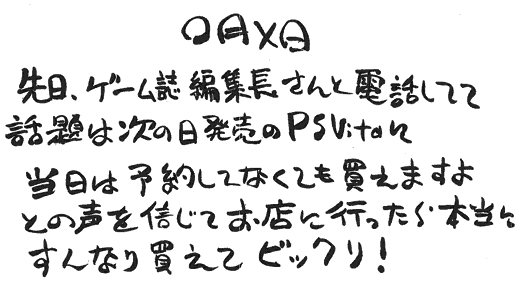 〇月×日
先日、ゲーム誌編集長さんと電話してて
話題は次の日発売のPSVitaに
当日は予約してなくても買えますよ
との声を信じてお店に行ったら本当に
すんなり買えてビックリ!